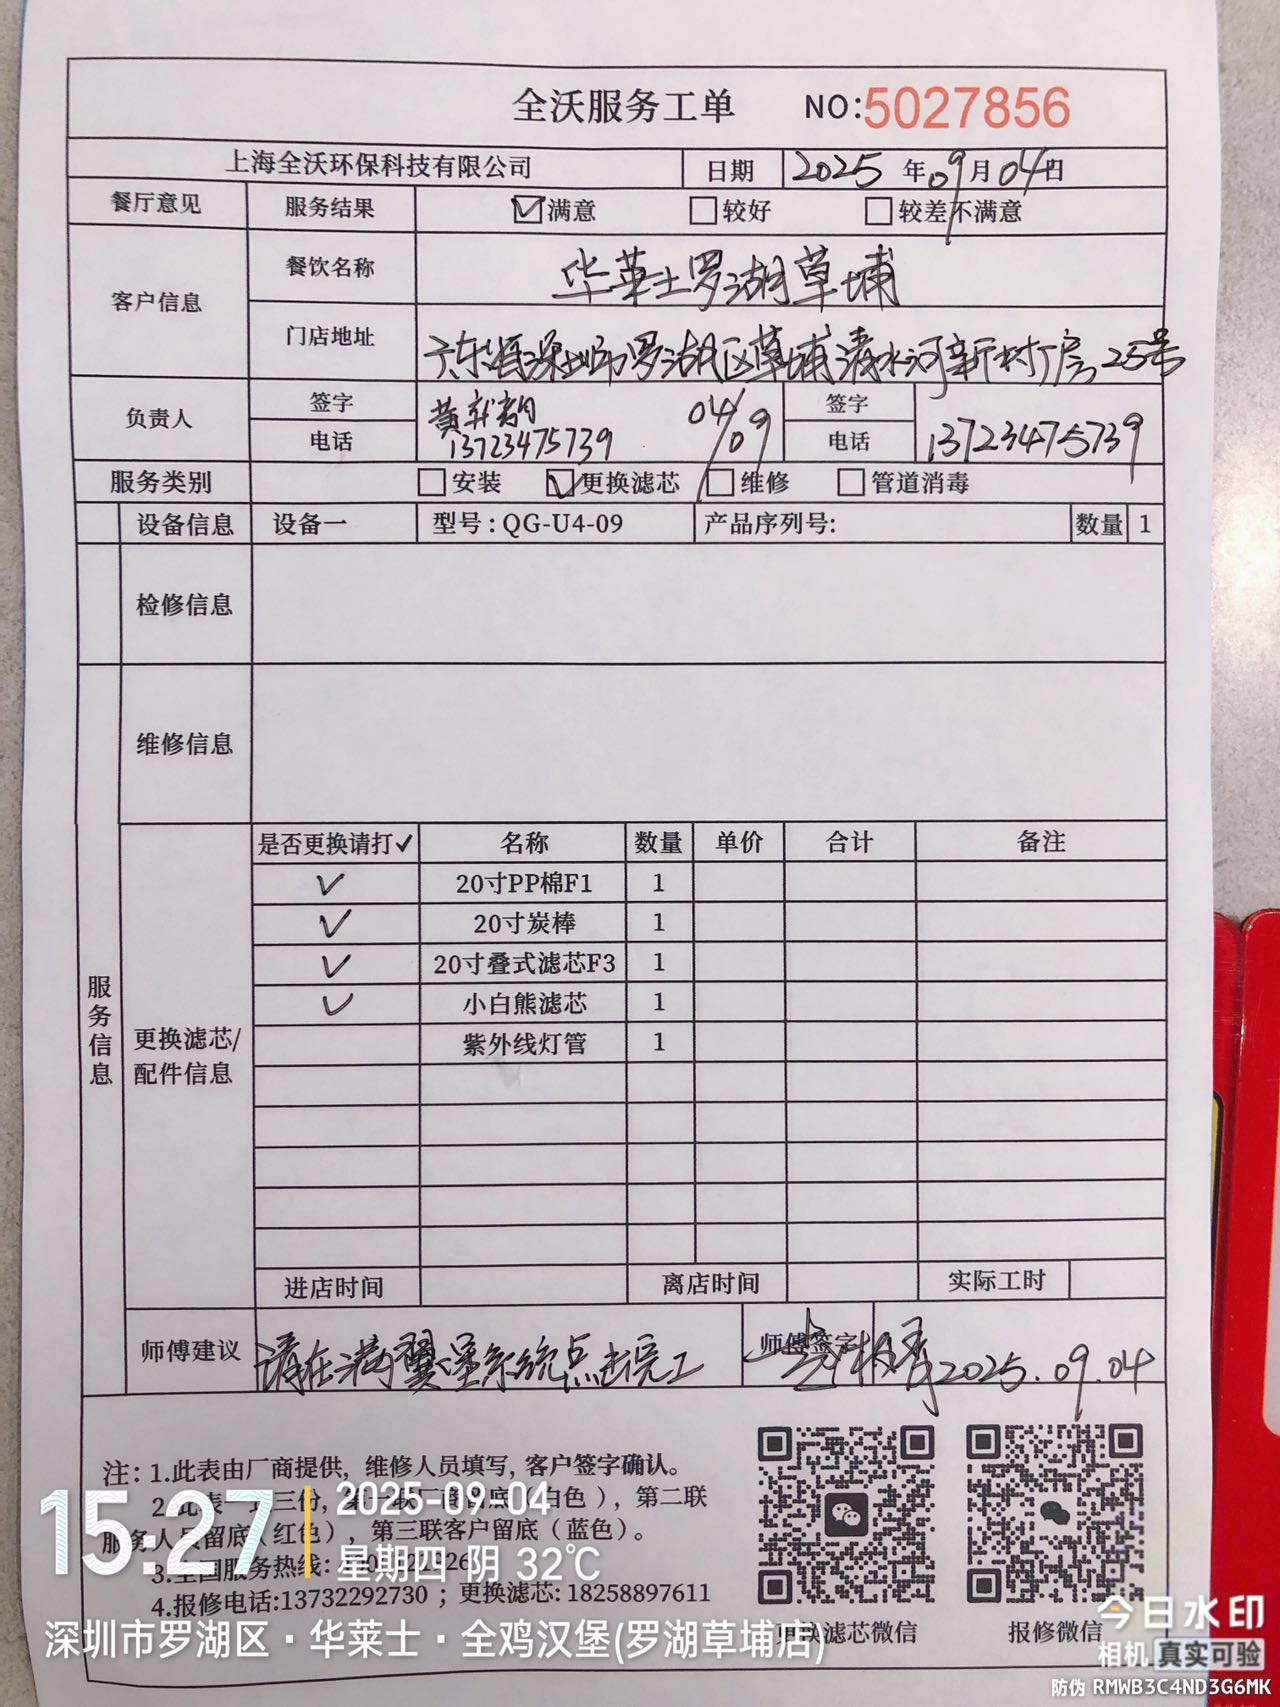 全沃服务工单 NO:5027856
上海全沃环保科技有限公司 日期 2025 年 09 月 04 日
餐厅意见 服务结果 ☑满意 □较好 □较差不满意
客户信息 餐饮名称 华莱士罗湖草埔
门店地址 广东省深圳市罗湖区草埔清水河新村厂房25号
负责人 签字 黄 04/09 签字
电话 13723475739 电话 13723475739
服务类别 □安装 ☑更换滤芯 □维修 □管道消毒
设备信息 设备一 型号:QG-U4-09 产品序列号: 数量 1
检修信息
维修信息
服务信息
更换滤芯/
配件信息
是否更换请打✓ 名称 数量 单价 合计 备注
✓ 20寸PP棉F1 1
✓ 20寸炭棒 1
✓ 20寸叠式滤芯F3 1
✓ 小白熊滤芯 1
紫外线灯管 1
进店时间 离店时间 实际工时
师傅建议 请在满翼星系统点击完工 师傅签字 2025.09.04
注: 1.此表由厂商提供, 维修人员填写, 客户签字确认。
2.此表一式三份, 第一联厂商留底(白色), 第二联
服务人员留底(红色), 第三联客户留底(蓝色)。
3.全国服务热线:
4.报修电话:13732292730 ; 更换滤芯: 18258897611
更换滤芯微信 报修微信
15:27
2025-09-04
星期四 阴 32℃
深圳市罗湖区·华莱士·全鸡汉堡(罗湖草埔店)
今日水印
相机 真实可验
防伪 RMWB3C4ND3G6MK